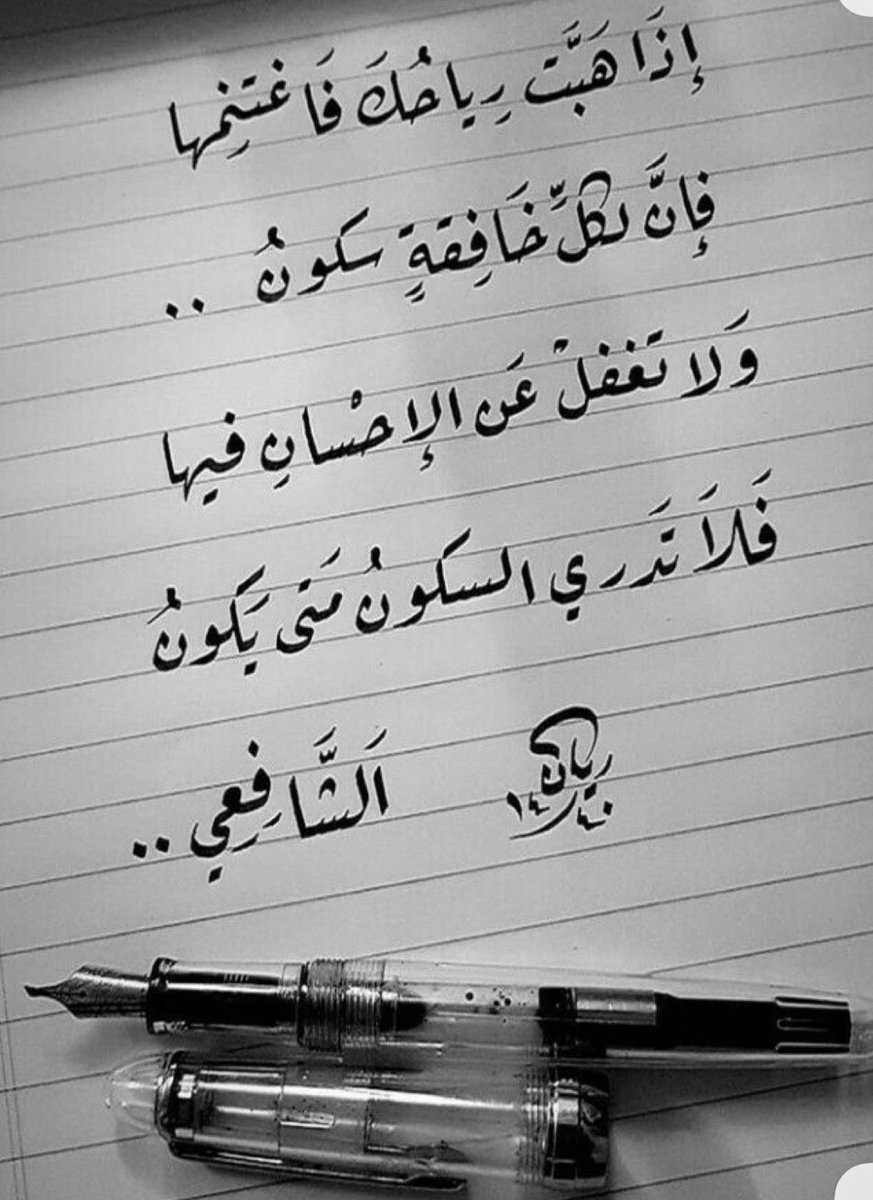 إِذَا هَبَّت رِياحُكَ فَاغتنِمها
فإِنَّ لكلِّ خَافِقةٍ سكونُ ..
وَلا تغفلْ عَن الإِحْسانِ فيها
فَلاَ تَدري السكونُ مَتى يَكونُ
اَلشَّافِعِي ..
ريان